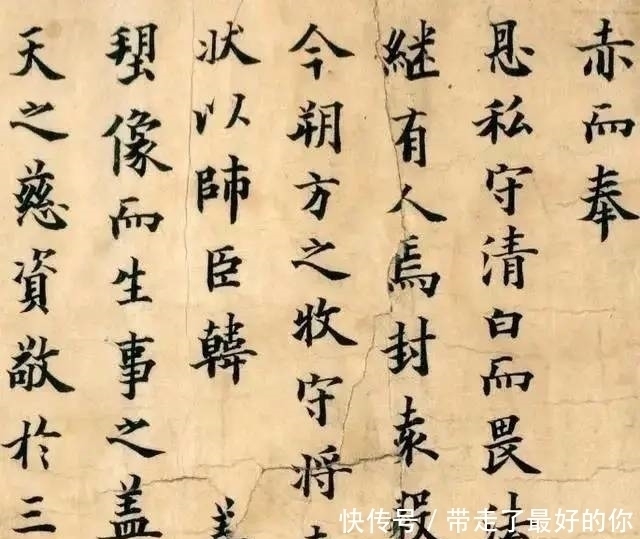 赤而奉
恩私守清白而畏
継有人焉封
今朔方之牧守将
状以師臣韓
像而生事之盖
天之慈資敬於三
快传号 / 带走了最好的你